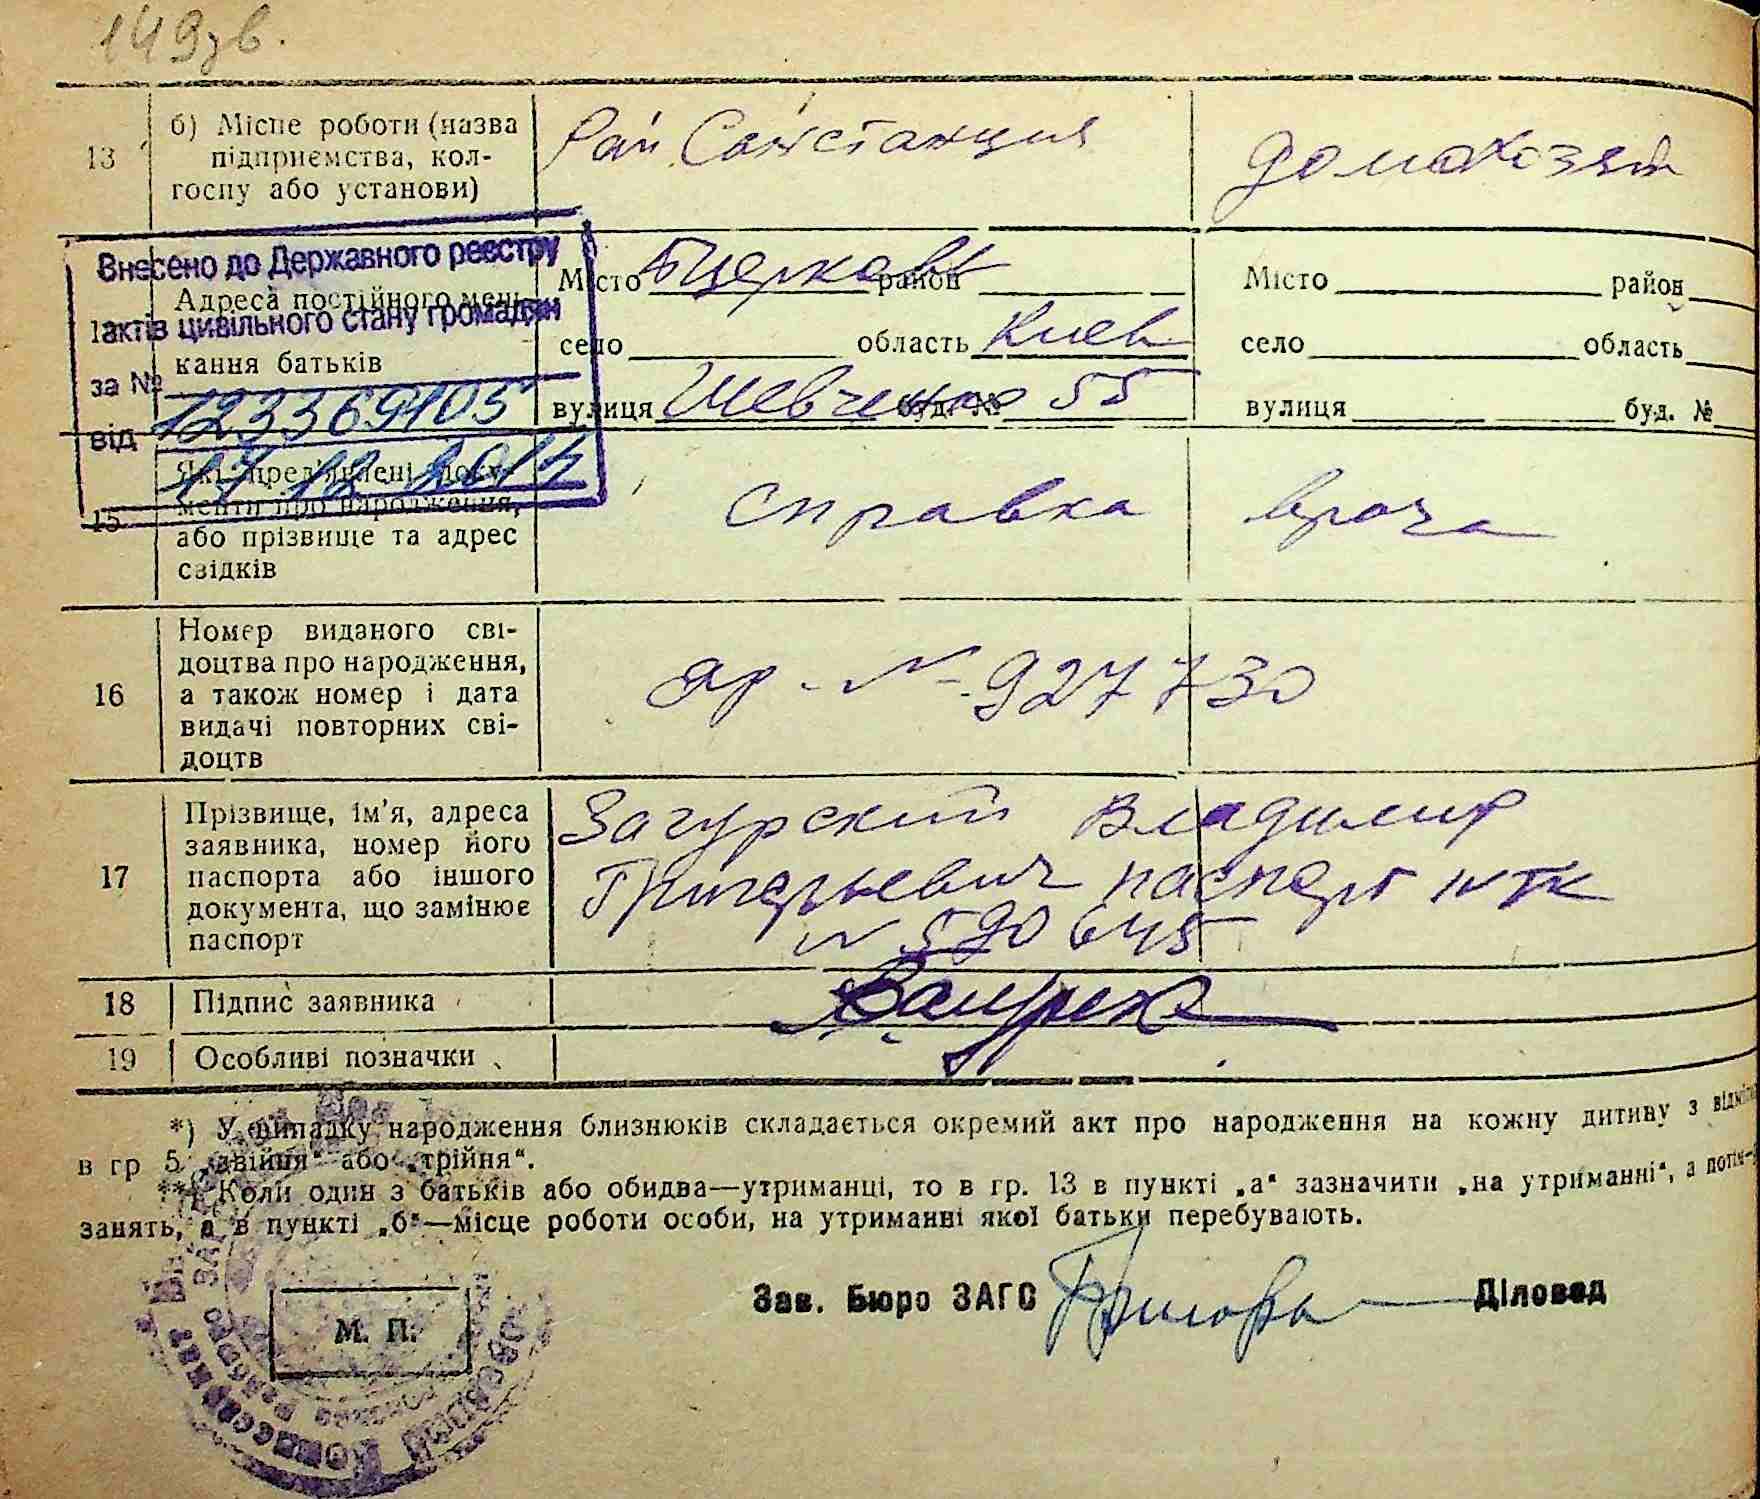 149 зв.
13 б) Місце роботи (назва підприємства, колгоспу або установи) Рай Санстанция домохозяй
Внесено до Державного реєстру
актів цивільного стану громадян
за № 123369105
від 17.12.2014
Адреса постійного меш-
кання батьків
Місто Бцерковь район Місто район
село область Киев село область
вулиця Шевченко буд. № 55 вулиця буд. №
15 Які пред'явлені доку-
менти про народження,
або прізвище та адрес
свідків
справка врача
16 Номер виданого сві-
доцтва про народження,
а також номер і дата
видачі повторних сві-
доцтв
яр - № 927730
17 Прізвище, ім'я, адреса
заявника, номер його
паспорта або іншого
документа, що замінює
паспорт
Загурский Владимир
Григорьевич паспорт IV ТК
№ 590645
18 Підпис заявника
19 Особливі позначки
*) У випадку народження близнюків складається окремий акт про народження на кожну дитину з
в гр 5 „двійня“ або „трійня“.
**) Коли один з батьків або обидва—утриманці, то в гр. 13 в пункті „а“ зазначити „на утриманні“, а потім
занять, а в пункті „б“—місце роботи особи, на утриманні якої батьки перебувають.
Зав. Бюро ЗАГС Діловод
М. П.